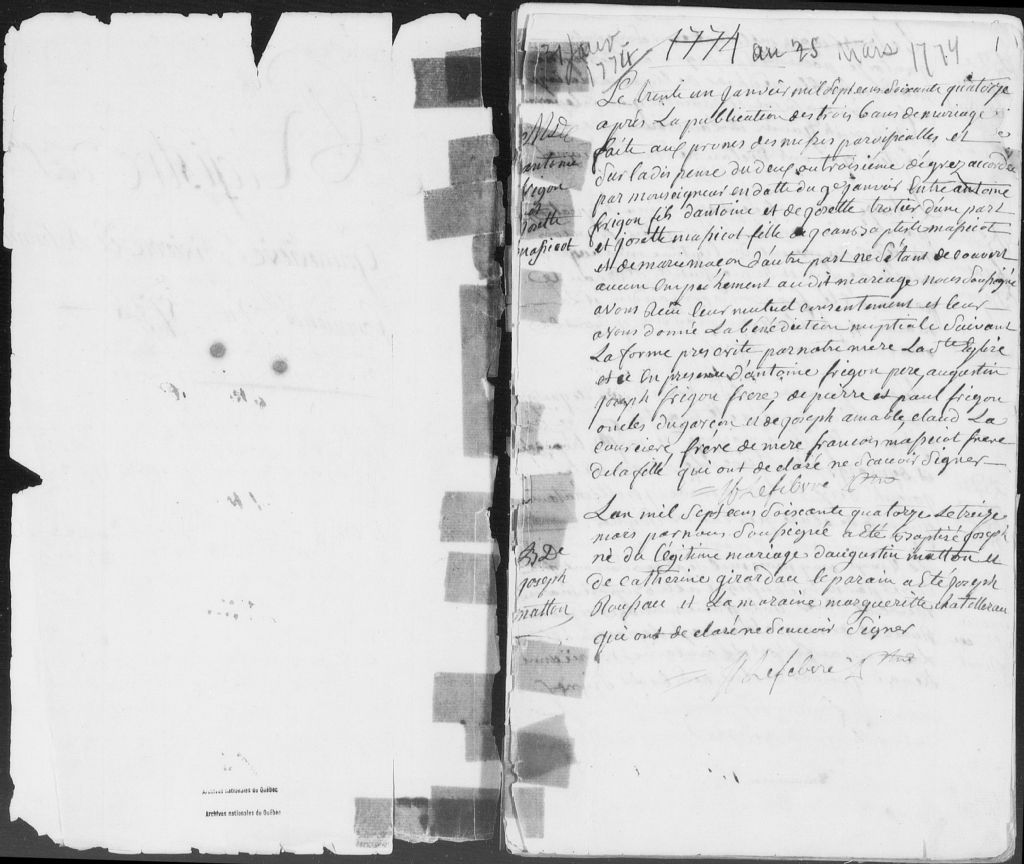 Archives nationales du Québec
Archives nationales du Québec
1
31 janv 1774 1774 au 25 Mars 1774
Le trente un janvier mil sept cens soixante quatorze
après La publication des trois bans de mariage
faite aux prones des messes paroissialles et
sur la dispense du deux ou troisieme dégrez accordée
par monseigneur en datte du 9e janvir Entre antoine
frigon fils d'antoine et de josette trotier d'une part
et josette massicot fille de jean baptiste massicot
et de marie maçon d'autre part ne s'étant decouvert
aucun Empechement au dit mariage nous soussigné
avons Reçu leur mutuel consentement et leur
avons donné La bénédiction nuptiale suivant
La forme prescrite par notre mere La ste Eglise
et ce En presence d'antoine frigon pere, augustin
joseph frigon freres, de pierre et paul frigon
oncles du garçon et de joseph amable, claud La
courciere, frere de mere francois massicot frere
de la fille qui ont declaré ne sçavoir signer
Lefebvre Ptre
M De
antoine
frigon
et
josette
massicot
Lan mil sept cens soissante quatorze Le treize
mars par nous soussignée a Eté baptisé joseph
né du légitime mariage daugustin matton et
de Catherine girardau le parain a Eté joseph
Rousseau et La maraine margueritte chatelleran
qui ont declaré ne scavoir signer
Lefebvre Ptre
B De
joseph
matton